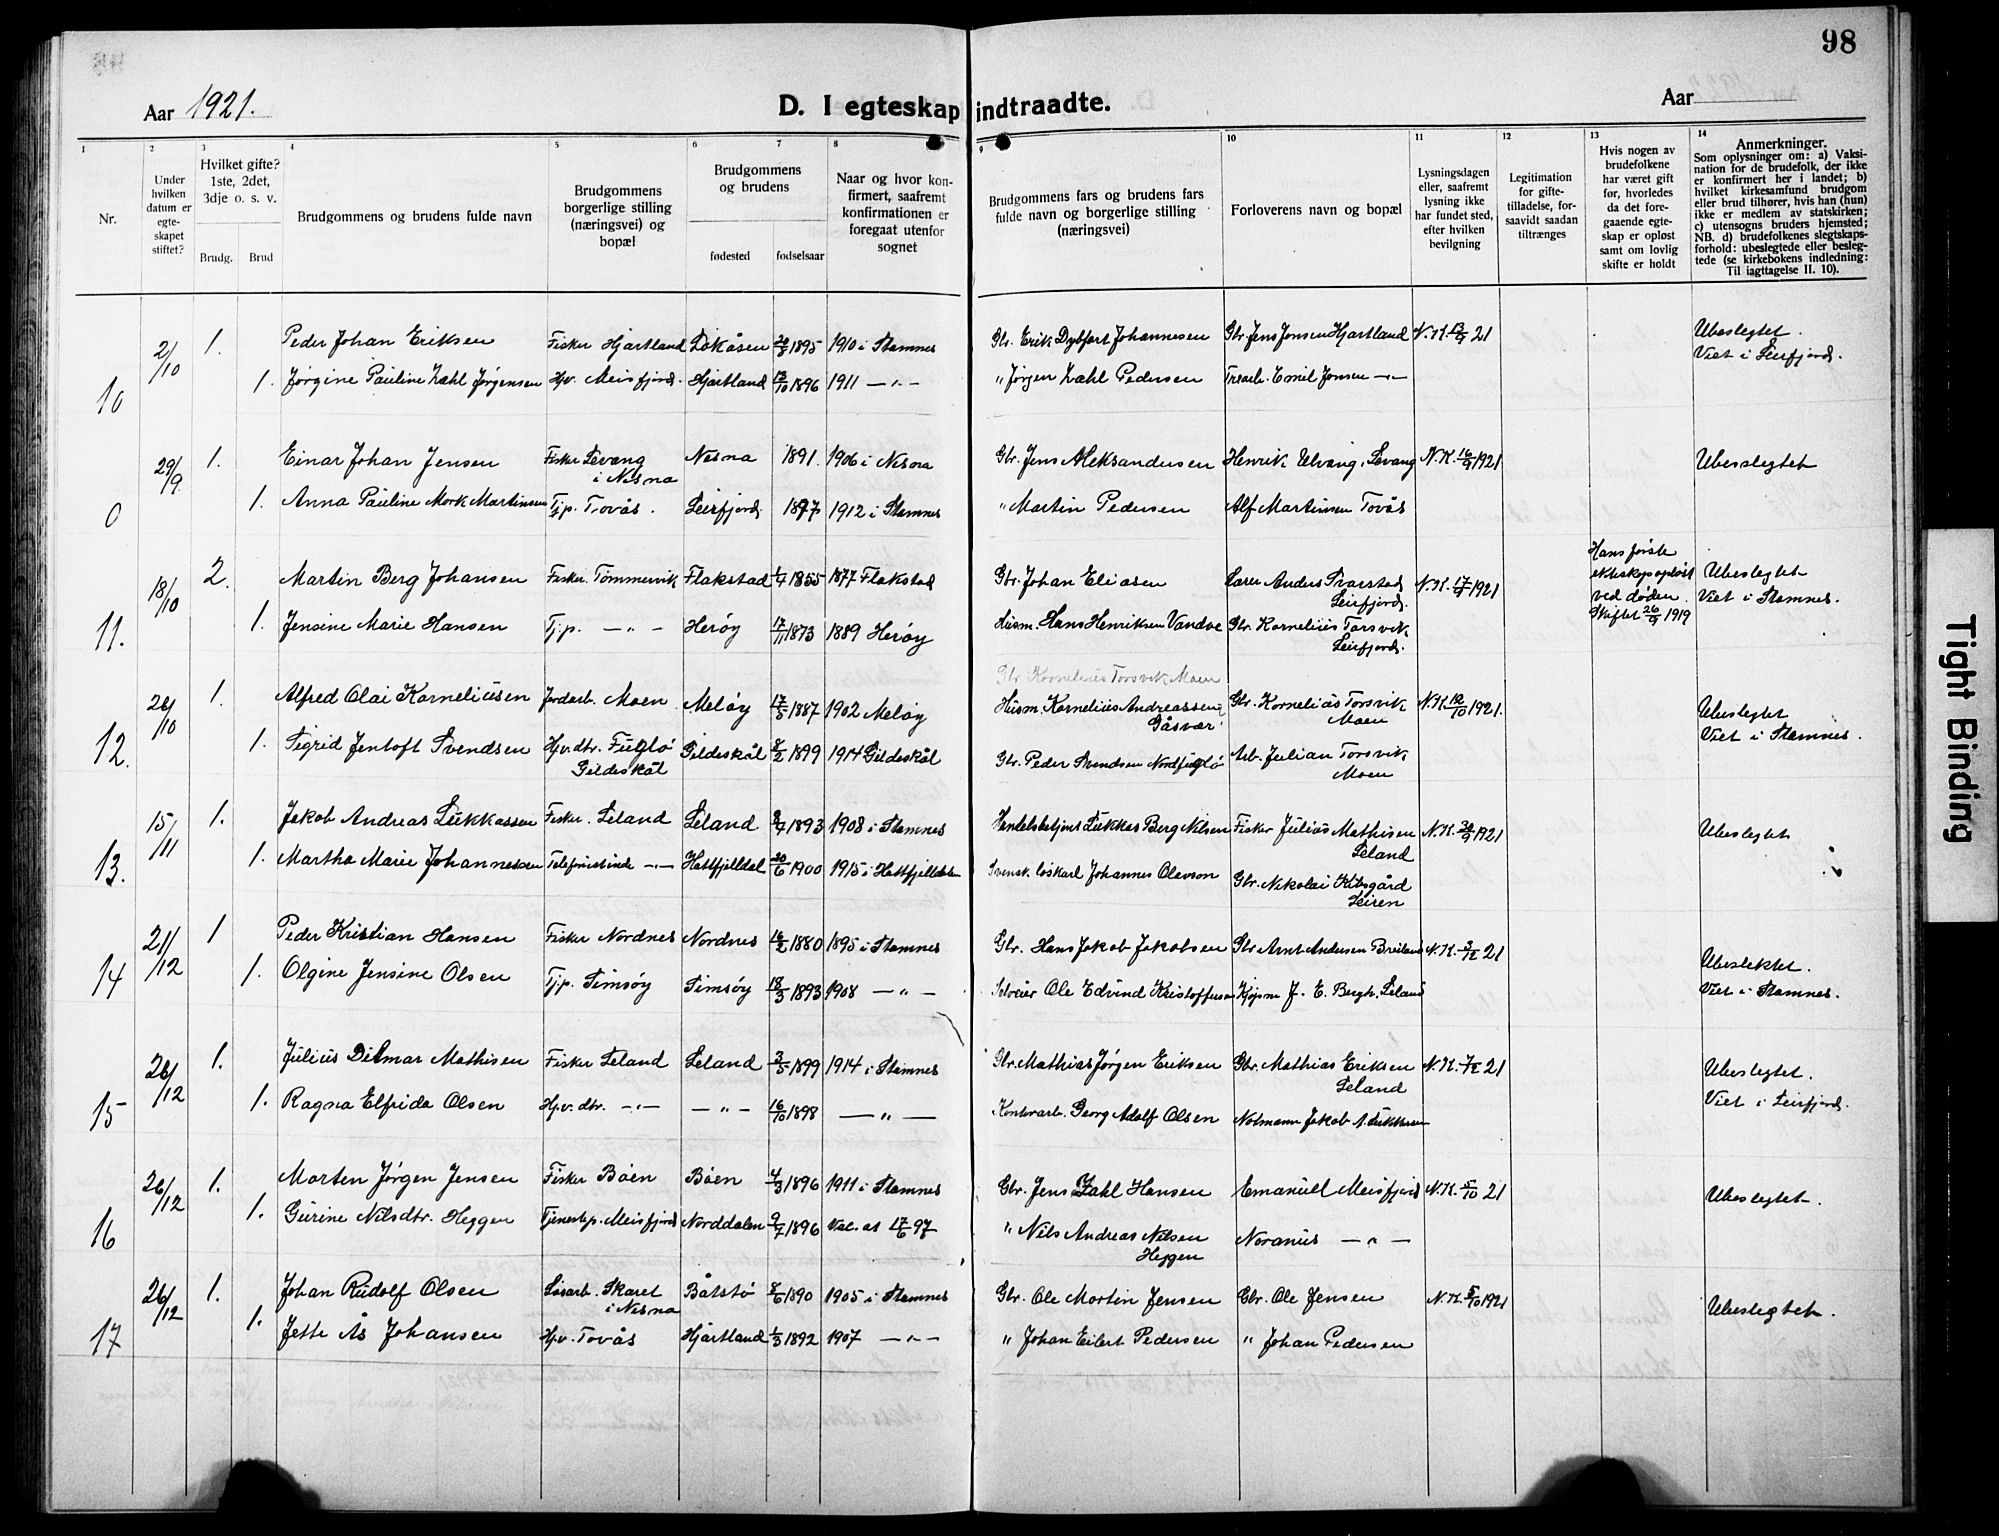 98
Aar 1921.
D. I egteskap indtraadte.
Aar
1
2
3
4
5
6
7
8
9
10
11
12
13
14
Nr.
Under
hvilken
datum er
egte-
skapet
stiftet?
Hvilket gifte?
1ste, 2det,
3dje o. s. v.
Brudg.
Brud
Brudgommens og brudens fulde navn
Brudgommens
borgerlige stilling
(næringsvei) og
bopæl
Brudgommens
og brudens
fødested
fødselsaar
Naar og hvor kon-
firmert, saafremt
konfirmationen er
foregaat utenfor
sognet
Brudgommens fars og brudens fars
fulde navn og borgerlige stilling
(næringsvei)
Forloverens navn og bopæl
Lysningsdagen
eller, saafremt
lysning ikke
har fundet sted,
efter hvilken
bevilgning
Legitimation
for gifte-
tilladelse, for-
saavidt saadan
tiltrænges
Hvis nogen av
brudefolkene
har været gift
før, hvorledes
da det fore-
gaaende egte-
skap er opløst
samt om lovlig
skifte er holdt
Anmerkninger.
Som oplysninger om: a) Vaksi-
nation for de brudefolk, der ikke
er konfirmert her i landet; b)
hvilket kirkesamfund brudgom
eller brud tilhører, hvis han (hun)
ikke er medlem av statskirken;
c) utensogns bruders hjemsted;
NB. d) brudefolkenes slegtskaps-
forhold: ubeslegtede eller besleg-
tede (se kirkebokens indledning:
Til iagttagelse II. 10).
10 2/10 1. Peder Johan Eriksen Fisker Hjartland Dokåsen 20/8 1895 1910 i Stamnes Gbr. Erik Dybfort Johannesen Gbr. Jens Jonsen Hjartland N.K. 13/9 21 Ubeslegtet.
Viet i Leirfjord.
1. Jørgine Pauline Zahl Jørgensen Hjv. Meisfjord. Hjartland 13/10 1896 1911 — " — " Jørgen Zahl Pedersen Trearb. Emil Jonsen — " —
0 29/9. 1. Einar Johan Jensen Fisker Levang
i Nesna Nesna 1891. 1906 i Nesna Gbr. Jens Aleksandersen Henrik Ulvang, Levang N.K. 16/9 1921 Ubesslegtet
1. Anna Pauline Mork Martinsen Tj.p. Tovås. Leirfjord. 1897 1912 i Stamnes " Martin Pedersen Alf Martinsen Tovås
11. 18/10 2. Martin Berg Johansen Fisker. Tømmervik Flakstad 1/4 1855 1877 Flakstad Gbr. Johan Eliasen Lærer Anders Svarstad
Leirfjord. N.K. 17/9 1921 Hans første
ekteskap opløst
ved døden.
Skiftet 26/9 1919 Ubeslegtet
Viet i Stamnes.
1. Jensine Marie Hansen Tj.p. — " — Herøy 17/11 1873 1889 Herøy Husm. Hans Henriksen Vandve Gbr. Kornelius Torsvik
Leirfjord.
Gbr Kornelius Torsvik Moen
12. 26/10 1. Alfred Olai Korneliusen Jordarb. Moen Meløy 17/5 1887 1902 Meløy Husm. Kornelius Andreassen
Gåsvær Gbr. Kornelius Torsvik
Moen N.K. 12/10 1921. Ubeslegtet
Viet i Stamnes.
1. Sigrid Jentoft Svendsen Hjv. dtr. Fuglø
Gildeskål Gildeskål 8/2 1899 1914 Gildeskål Gbr. Peder Svendsen Nordfuglø Arb. Julian Torsvik
Moen
13. 15/11 1. Jakob Andreas Lukkassen Fisker. Leland Leland 8/4 1893 1908 i Stamnes Handelsbetjent Lukkas Berg Nilsen Fisker Julius Mathisen
Leland N.K. 30/9 1921 Ubeslegtet
1. Martha Marie Johannessen Telefonistinde — " — Hattfjelldal 20/6 1900 1915 i Hattfjelldalen Svensk. løskarl Johannes Olevson Gbr. Nikolai Kibsgård
Leiren
14 21/12 1 Peder Kristian Hansen Fisker Nordnes Nordnes 16/2 1880 1895 i Stamnes Gbr. Hans Jakob Jakobsen Gbr Arnt Andersen Breiland N.K. 3/12 21 Ubeslektet.
Viet i Stamnes.
1. Olgine Jensine Olsen Tj.p. Simsøy Simsøy 18/3 1893 1908 — " — Selveier Ole Edvind Kristoffersen Kjøpm J. E. Bergh, Leland
15 26/12 1. Julius Ditmar Mathisen Fisker Leland Leland 3/5 1899 1914 i Stamnes Gbr. Mathias Jørgen Eriksen Gbr. Mathias Eriksen
Leland N.K. 7/12 21 Ubeslegtet.
Viet i Leirfjord.
1. Ragna Elfrida Olsen Hjv. dtr. — " — — " — 16/10 1898 — " — Kontorarb. Georg Adolf Olsen Notmann Jakob A. Lukkassen
16 26/12 1. Morten Jørgen Jensen Fisker Båen Båen 4/3 1896 1911 i Stamnes Gbr. Jens Zahl Hansen Emanuell Meisfjord N.K. 5/10 21 Ubeslegtet.
1. Gurine Nilsdtr. Heggen Tjenestep. Meisfjord Norddalen 9/7 1896 Vac. at 17/6 97 " Nils Andreas Nilsen
Heggen Noranus — " —
17 26/12 1. Johan Rudolf Olsen Løsarb. Skaret
i Nesna Båtstø 8/6 1890 1905 i Stamnes Gbr. Ole Mortin Jensen Gbr. Ole Jensen N.K. 5/10 1921 Ubeslegtet.
1. Jette Ås Johansen Hjv. Tovås Hjartland 1/3 1892 1907 — " — " Johan Eilert Pedersen " Johan Pedersen
Tight Binding